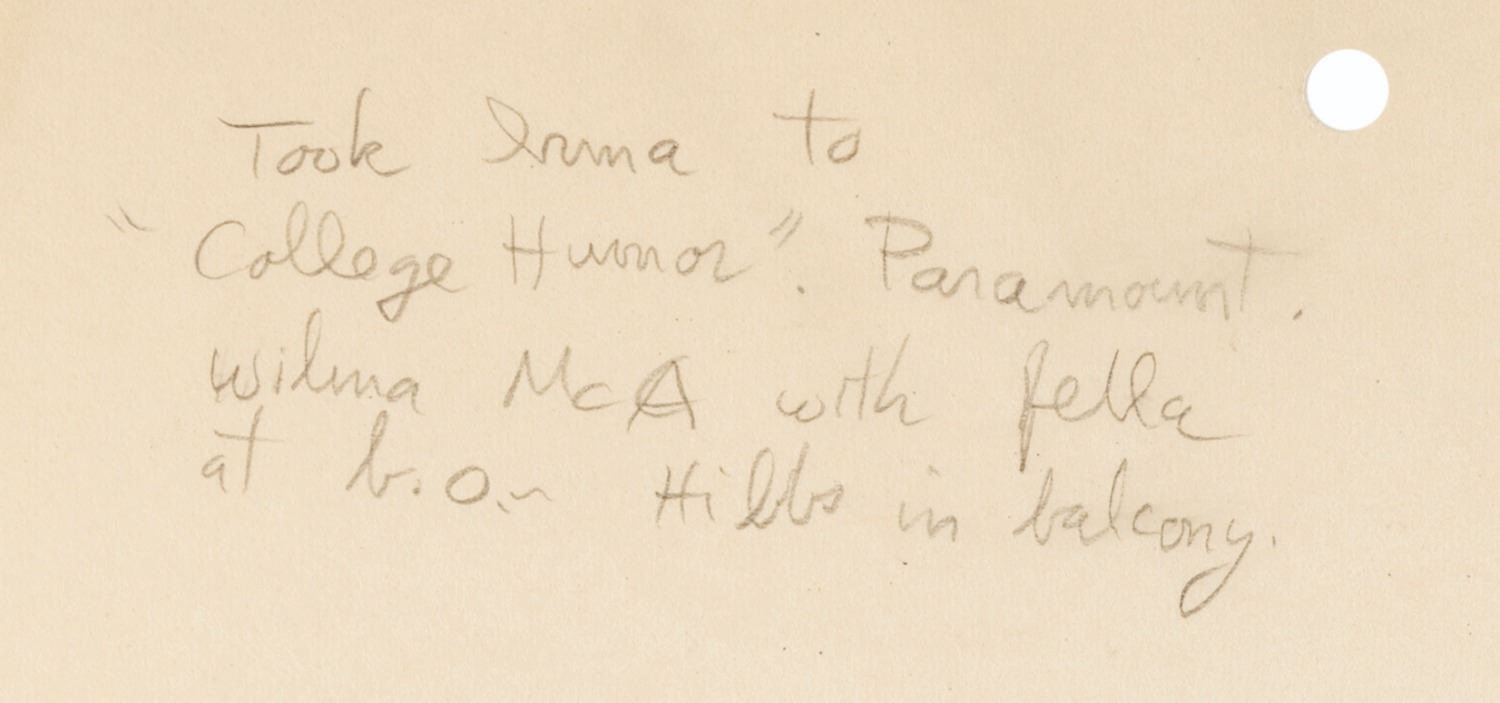 Took Irma to
"College Humor". Paramount.
Wilma McA with fella
at b.o. – Hibbs in balcony.